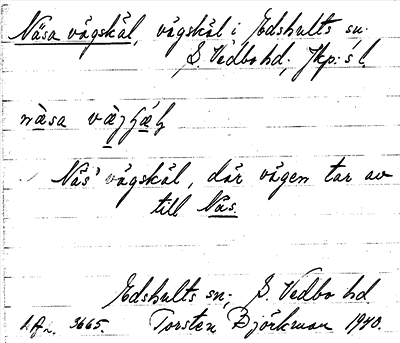 Näsa vägskäl, vägskäl i Edshults sn.
S. Vedbo hd, Jkp:s l.
Näs' vägskäl, där vägen tar av
till Näs.
Edshults sn; S. Vedbo hd.
3665. Torsten Björkman 1940.